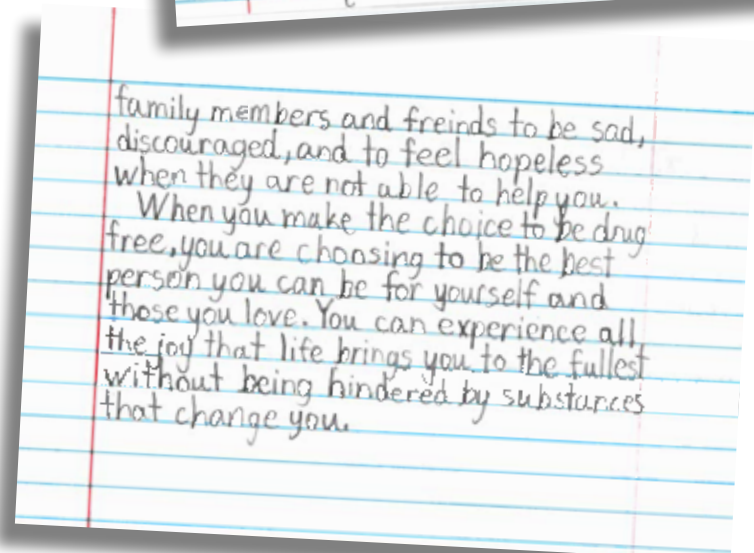 family members and freinds to be sad,
discouraged, and to feel hopeless
when they are not able to help you.
When you make the choice to be drug
free, you are choosing to be the best
person you can be for yourself and
those you love. You can experience all
the joy that life brings you to the fullest
without being hindered by substances
that change you.